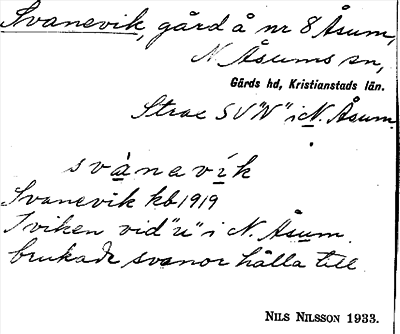 Svanevik, gård å nr 8 Åsum,
N. Åsums sn,
Gärds hd, Kristianstads län.
Strax SV "N" i N. Åsum.
svànevík
Svanevik kb 1919
I viken vid "u" i N. Åsum
brukade svanor hålla till
NILS NILSSON 1933.